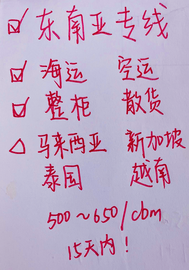 ☑ 东南亚专线
☑ 海运 空运
☑ 整柜 散货
△ 马来西亚 新加坡
泰国 越南
500~650/cbm
15天内!